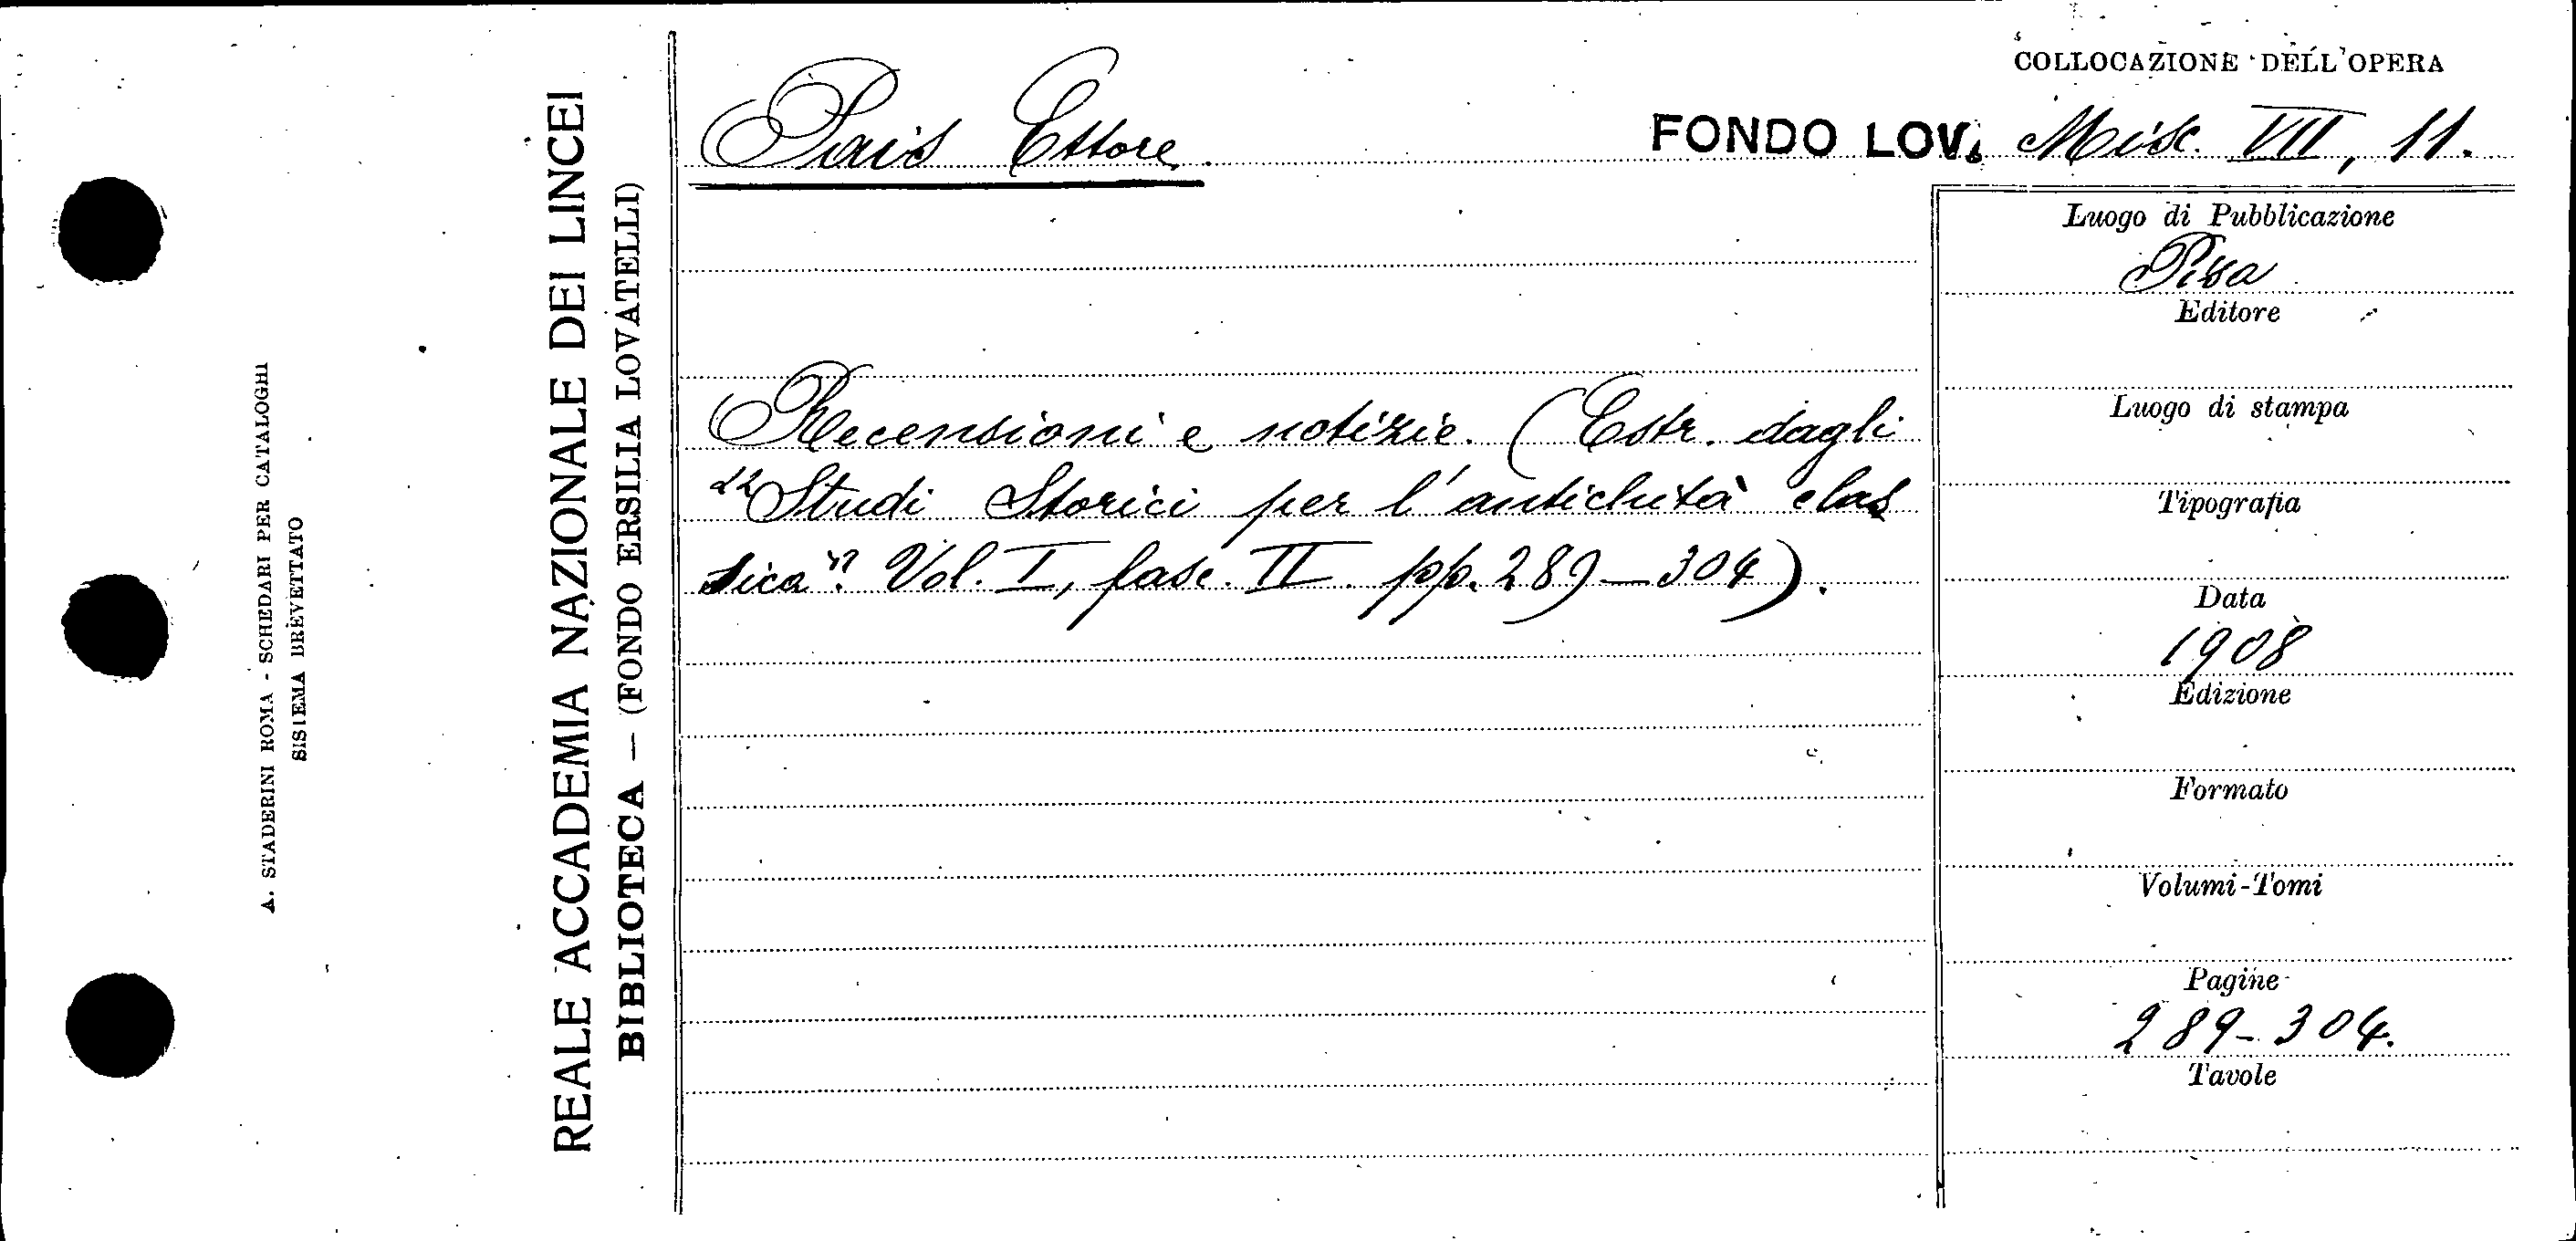 COLLOCAZIONE DELL'OPERA
Pais Ettore.
FONDO LOV. Misc. VII, 11.
Recensioni e notizie. (Estr. dagli
"Studi Storici per l'antichità clas
sica". Vol. I, fasc. II. pp. 289-304).
Luogo di Pubblicazione
Pisa
Editore
Luogo di stampa
Tipografia
Data
1908
Edizione
Formato
Volumi-Tomi
Pagine
289-304.
Tavole
REALE ACCADEMIA NAZIONALE DEI LINCEI
BIBLIOTECA — (FONDO ERSILIA LOVATELLI)
A. STADERINI ROMA - SCHEDARI PER CATALOGHI
SISTEMA BREVETTATO